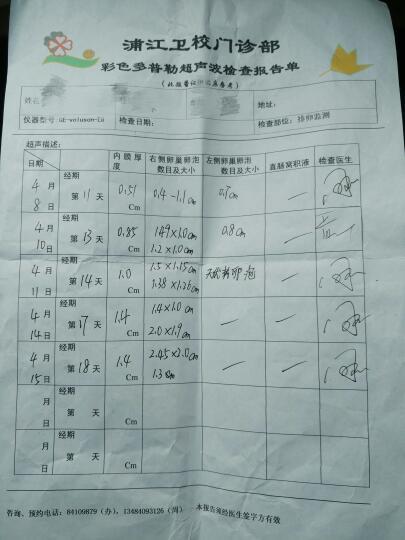 浦江卫校门诊部
彩色多普勒超声波检查报告单
(此报告仅供临床参考)
姓名
地址:
仪器型号:GE-voluson-E8 检查日期: 检查部位:排卵监测
超声描述:
日期 内膜厚度 右侧卵巢卵泡数目及大小 左侧卵巢卵泡数目及大小 直肠窝积液 检查医生
4月8日 经期第11天 0.51Cm 0.4-1.1cm 0.7cm —
4月10日 经期第13天 0.85Cm 1.49×1.0cm 0.8cm —
1.2×1.0cm
4月11日 经期第14天 1.0Cm 1.5×1.15cm —
1.38×1.26cm
4月14日 经期第17天 1.4Cm 1.4×1.0cm — —
2.0×1.9cm
4月15日 经期第18天 1.4Cm 2.45×2.0cm — —
1.3cm
月日 经期第天 Cm
月日 经期第天 Cm
咨询、预约电话:84109879(办),13484093126(周) 本报告须经医生签字方有效